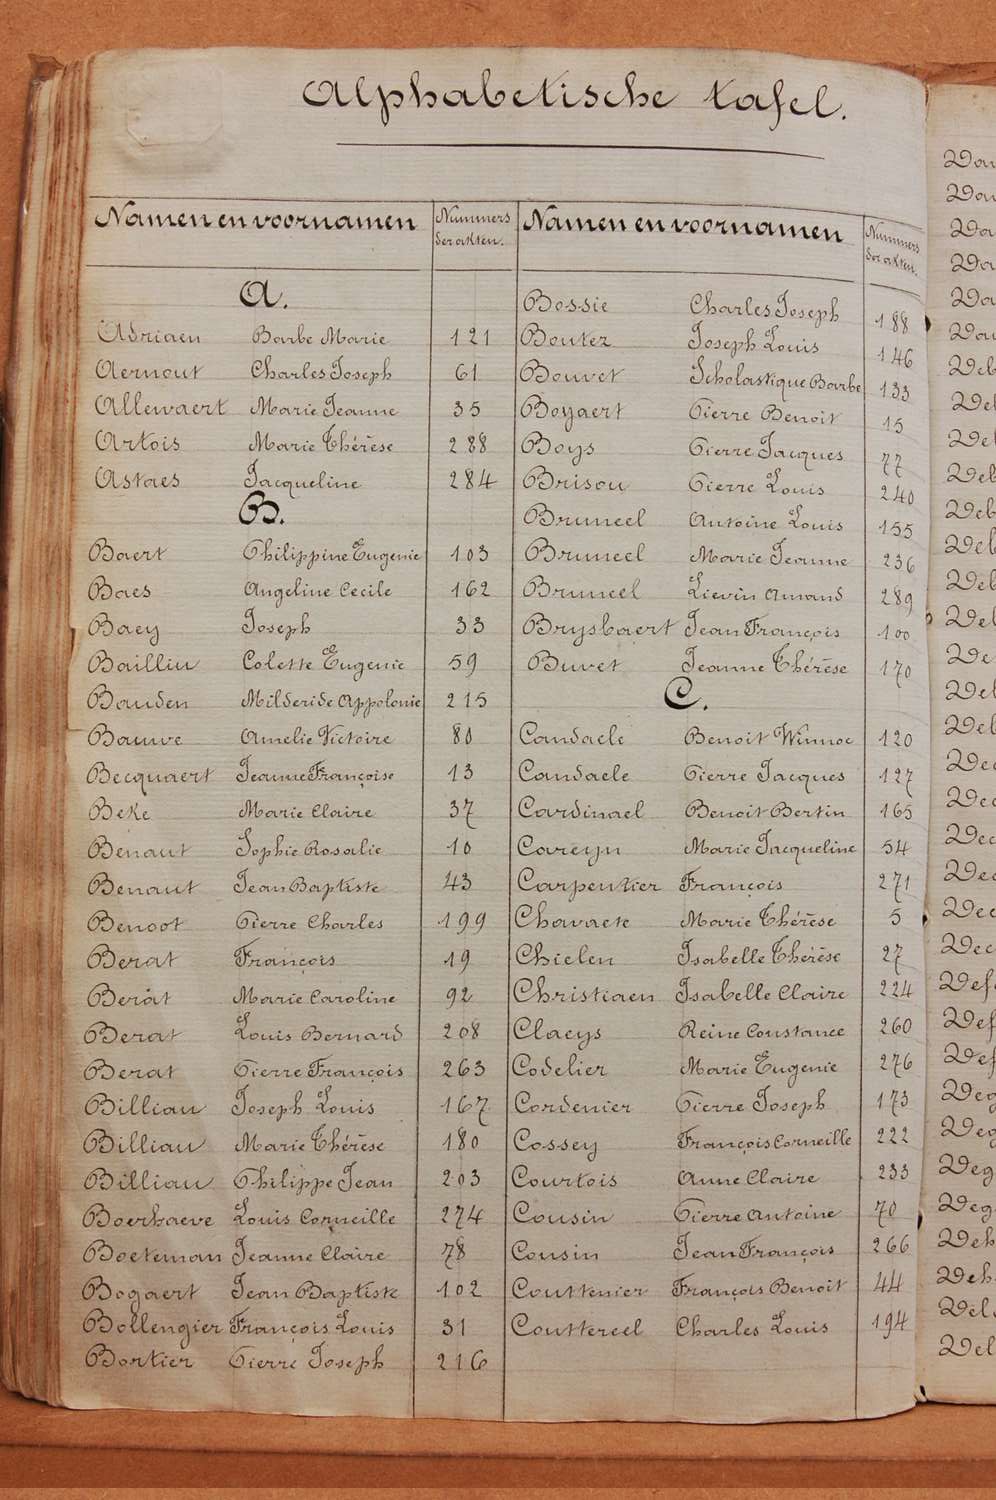 Alphabetische tafel.
Namen en voornamen Nummers der akten.
A.
Adriaen Barbe Marie 121
Aernout Charles Joseph 61
Allewaert Marie Jeanne 35
Artois Marie Thérèse 288
Astaes Jacqueline 284
B.
Baert Philippine Eugenie 103
Baes Angeline Cecile 162
Baey Joseph 33
Bailliu Colette Eugenie 59
Bauden Milderide Appolonie 215
Bauwe Amelie Victoire 80
Becquaert Jeanne Françoise 13
Beke Marie Claire 37
Benaut Sophie Rosalie 10
Benaut Jean Baptiste 43
Benoot Pierre Charles 199
Berat François 19
Berat Marie Caroline 92
Berat Louis Bernard 208
Berat Pierre François 263
Billiau Joseph Louis 167
Billiau Marie Thérèse 180
Billiau Philippe Jean 203
Boerhaeve Louis Corneille 274
Boeteman Jeanne Claire 78
Bogaert Jean Baptiste 102
Bollengier François Louis 31
Bortier Pierre Joseph 216
Namen en voornamen Nummers der akten.
Bossie Charles Joseph 188
Boutez Joseph Louis 146
Bouvet Scholastique Barbe 133
Boyaert Pierre Benoit 15
Boys Pierre Jacques 77
Brisou Pierre Louis 240
Bruneel Antoine Louis 155
Bruneel Marie Jeanne 236
Bruneel Lievin Amand 289
Brysbaert Jean François 100
Buvet Jeanne Thérèse 170
C.
Candaele Benoit Winnoc 120
Candaele Pierre Jacques 127
Cardinael Benoit Bertin 165
Careyn Marie Jacqueline 54
Carpentier François 271
Chavaete Marie Thérèse 5
Chielen Isabelle Thérèse 27
Christiaen Isabelle Claire 224
Claeys Reine Constance 260
Codelier Marie Eugenie 276
Cordenier Pierre Joseph 173
Cossey François Corneille 222
Courtois Anne Claire 233
Cousin Pierre Antoine 70
Cousin Jean François 266
Couttenier François Benoit 44
Couttereel Charles Louis 194